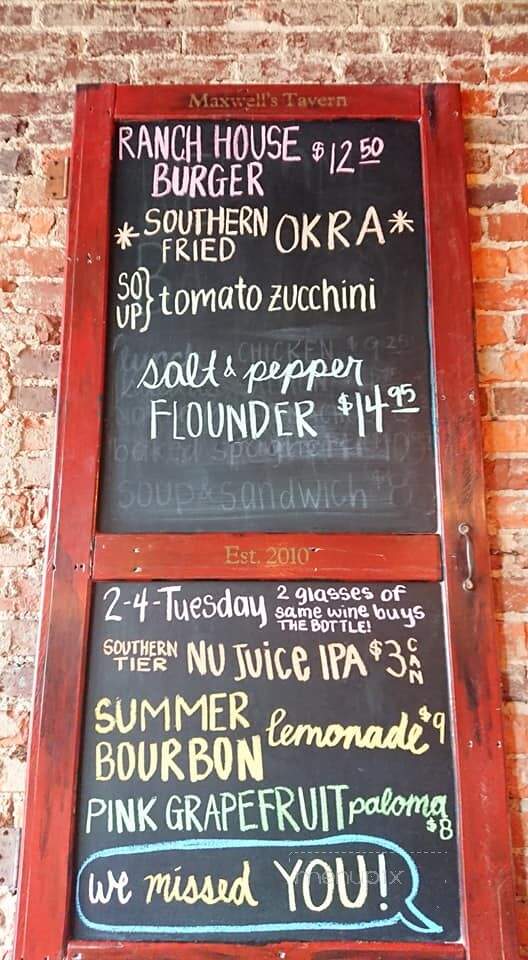 Maxwell's Tavern
RANCH HOUSE $12 50
BURGER
*SOUTHERN FRIED OKRA*
SOUP} tomato zucchini
CHICKEN
salt & pepper
FLOUNDER $14 95
baked spaghetti
soup & sandwich
Est. 2010
2-4-Tuesday 2 glasses of
same wine buys
THE BOTTLE!
SOUTHERN TIER NU JUICE IPA $3 CAN
SUMMER
BOURBON lemonade $9
PINK GRAPEFRUIT paloma $8
We missed YOU!
menupix